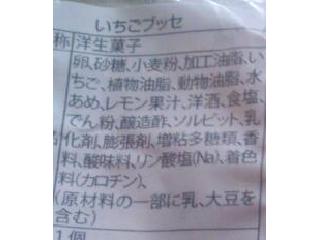 いちごブッセ
称 洋生菓子
卵、砂糖、小麦粉、加工油脂、い
ちご、植物油脂、動物油脂、水
あめ、レモン果汁、洋酒、食塩、
でん粉、醸造酢、ソルビット、乳
化剤、膨張剤、増粘多糖類、香
料、酸味料、リン酸塩(Na)、着色
料(カロチン)、
(原材料の一部に乳、大豆を
含む)
1個